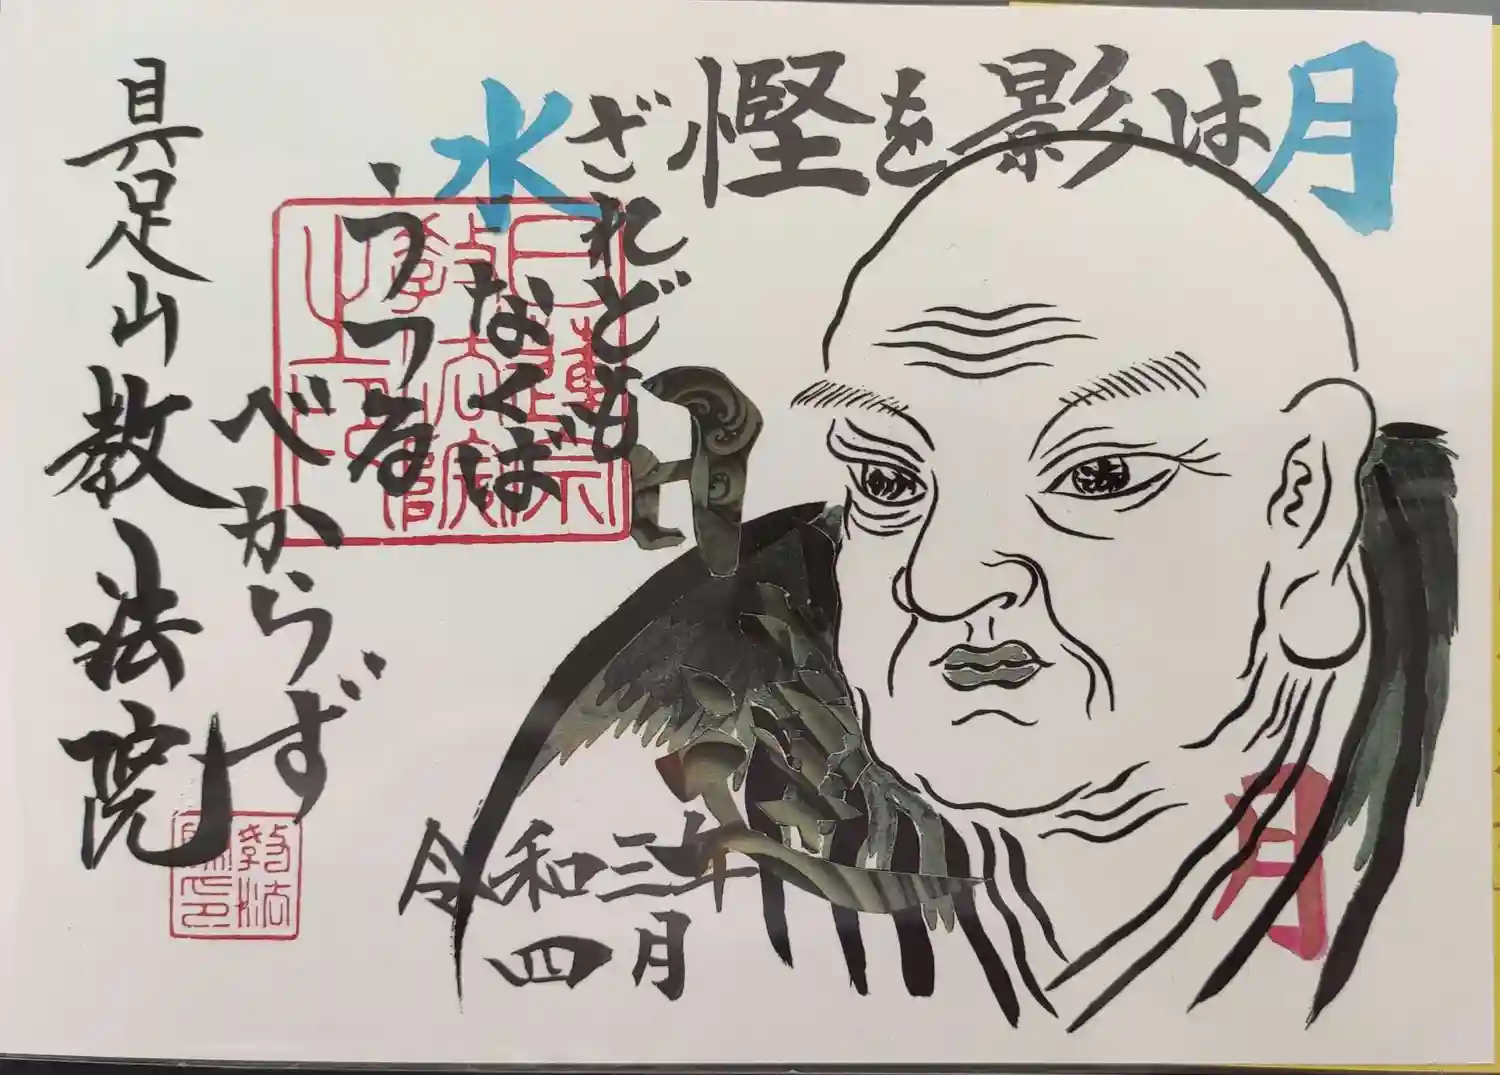 月は影を慳
ざれども
水なくば
うつる
べからず
具足山
教法院
令和三年
四月
月